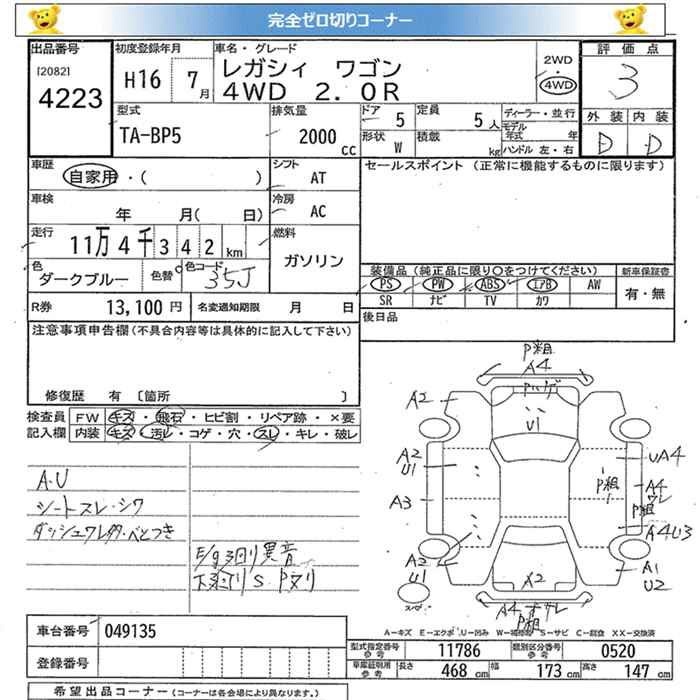 完全ゼロ切りコーナー
出品番号 初度登録年月 車名・グレード 評価点
[2082] 4223
H16 7月
レガシィ ワゴン
4WD 2.0R
2WD・4WD
3
外装 内装
D D
型式 排気量 ドア 定員 ディーラー・並行
TA-BP5 2000cc 5 5人 モデル年式 年
形状 W 積載 kg ハンドル 左・右
車歴 自家用・( ) シフト AT
セールスポイント (正常に機能するものに限ります)
車検 年 月( 日) 冷房 AC
走行 11万4千342km 燃料 ガソリン
色 ダークブルー 色替 色コード 35J
装備品(純正品に限り〇をつけてください) 新車保証書
PS PW ABS エアB AW 有・無
SR ナビ TV カワ
R券 13,100円 名変通知期限 月 日
後日品
注意事項申告欄(不具合内容等は具体的に記入して下さい)
修復歴 有 [箇所 ]
検査員 FW キズ・飛石・ヒビ割・リペア跡・×要
記入欄 内装 キズ・汚レ・コゲ・穴・スレ・キレ・破レ
A・U
シートスレ・シワ
ダッシュワレ・べとつき
E/g廻り異音
下廻りS Pヌリ
P粗
A4
A2
Pハゲ
U1
A2 U1
UA4
P粗
A3
A4 ワレ
P粗
A4U3
A2 U1
A1 U2
X2
A4
P粗
A―キズ E―エクボ U―凹み W―補修跡 S―サビ C―腐食 XX―交換済
車台番号 049135
型式指定番号 参考 11786 類別区分番号 参考 0520
登録番号
車庫証明用 参考 長さ 468cm 幅 173cm 高さ 147cm
希望出品コーナー (コーナーは各会場により異なります。)